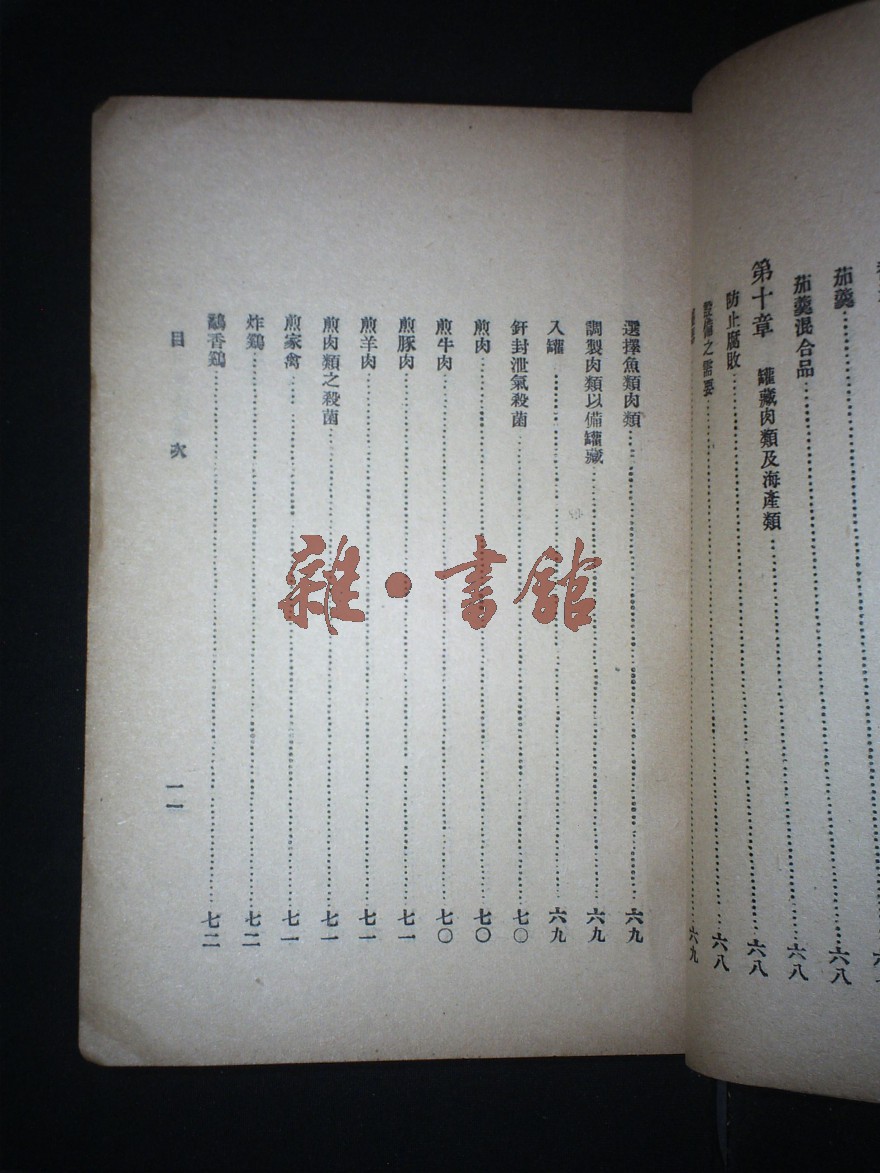 茄羹……六八
茄羹混合品……六八
第十章　罐藏肉類及海產類……六八
防止腐敗……六八
設備之需要……六九
選擇魚類肉類……六九
調製肉類以備罐藏……六九
入罐……六九
釬封泄氣殺菌……七〇
煎肉……七〇
煎牛肉……七〇
煎豚肉……七一
煎羊肉……七一
煎肉類之殺菌……七一
煎家禽……七一
炸鷄……七二
香鷄……七二
目次
一一
雜·書館